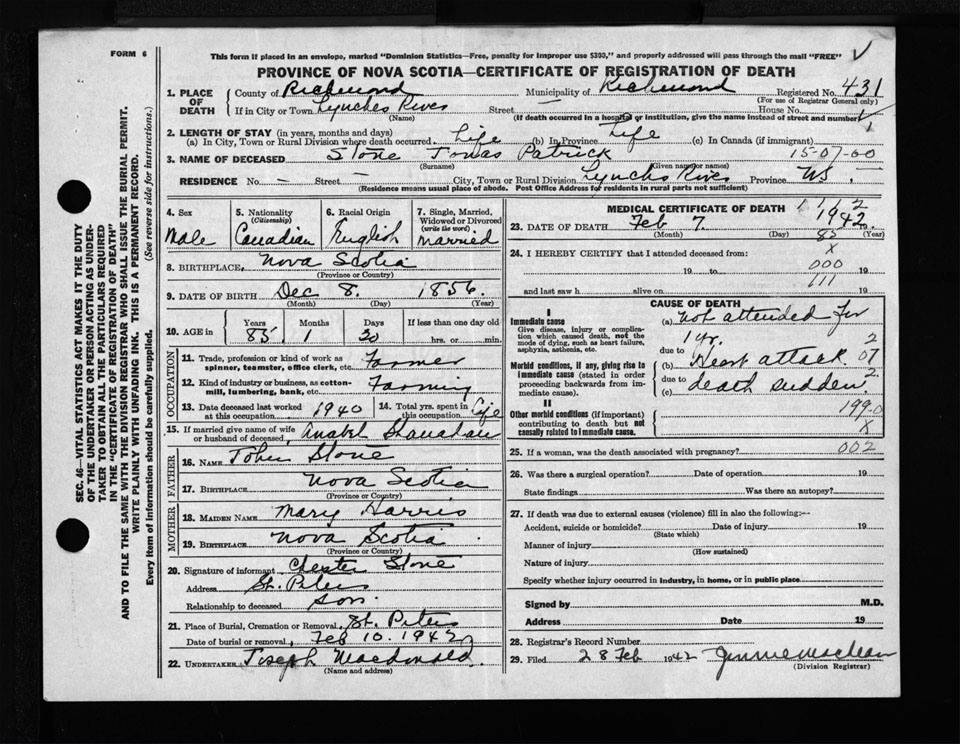 FORM 6
This form if placed in an envelope, marked "Dominion Statistics—Free, penalty for improper use $300," and properly addressed will pass through the mail "FREE"
PROVINCE OF NOVA SCOTIA—CERTIFICATE OF REGISTRATION OF DEATH
1. PLACE OF DEATH County of Richmond Municipality of Richmond Registered No. 431
(For use of Registrar General only)
If in City or Town Lynches River Street — House No.
(Name) (If death occurred in a hospital or institution, give the name instead of street and number)
2. LENGTH OF STAY (in years, months and days)
(a) In City, Town or Rural Division where death occurred, Life (b) In Province Life (c) In Canada (if immigrant)
3. NAME OF DECEASED Stone Tomas Patrick 15-07-00
(Surname) (Given name or names)
RESIDENCE No. — Street — City, Town or Rural Division Lynches River Province NS.
(Residence means usual place of abode. Post Office Address for residents in rural parts not sufficient)
4. Sex Male
5. Nationality (Citizenship) Canadian
6. Racial Origin English
7. Single, Married, Widowed or Divorced (write the word) married
8. BIRTHPLACE, Nova Scotia
(Province or Country)
9. DATE OF BIRTH Dec 8. 1856.
(Month) (Day) (Year)
10. AGE in Years 85 Months 1 Days 30 If less than one day old hrs. or min.
OCCUPATION
11. Trade, profession or kind of work as spinner, teamster, office clerk, etc. Farmer
12. Kind of industry or business, as cotton-mill, lumbering, bank, etc. Farming
13. Date deceased last worked at this occupation 1940
14. Total yrs. spent in this occupation Life
15. If married give name of wife or husband of deceased,
FATHER
16. Name John Stone
17. Birthplace Nova Scotia
(Province or Country)
MOTHER
18. Maiden Name Mary Harris
19. Birthplace Nova Scotia
(Province or Country)
20. Signature of informant Chester Stone
Address St. Peters
Relationship to deceased son.
21. Place of Burial, Cremation or Removal St. Peters
Date of burial or removal, Feb 10. 1942
22. UNDERTAKER Joseph Macdonald.
(Name and address)
MEDICAL CERTIFICATE OF DEATH 1 1 2
23. DATE OF DEATH Feb 7. 1942.
(Month) (Day) 85 (Year)
24. I HEREBY CERTIFY that I attended deceased from: X
19 to 000 19
and last saw h alive on 111 19
CAUSE OF DEATH
I
Immediate cause
Give disease, injury or complication which caused death, not the mode of dying, such as heart failure, asphyxia, asthenia, etc.
(a) not attended for
1 yr. 2
due to
Morbid conditions, if any, giving rise to immediate cause (stated in order proceeding backwards from immediate cause).
(b) Heart attack 07
due to
(c) death sudden 2.
II
Other morbid conditions (if important) contributing to death but not causally related to immediate cause.
199.0
X
25. If a woman, was the death associated with pregnancy? 002
26. Was there a surgical operation? Date of operation 19
State findings Was there an autopsy?
27. If death was due to external causes (violence) fill in also the following:—
Accident, suicide or homicide? Date of injury 19
(State which)
Manner of injury
(How sustained)
Nature of injury
Specify whether injury occurred in industry, in home, or in public place
Signed by M.D.
Address Date 19
28. Registrar's Record Number
29. Filed 28 Feb 1942 Jennie MacLean
(Division Registrar)
SEC. 46—VITAL STATISTICS ACT MAKES IT THE DUTY
OF THE UNDERTAKER OR PERSON ACTING AS UNDER-
TAKER TO OBTAIN ALL THE PARTICULARS REQUIRED
IN THE "CERTIFICATE OF REGISTRATION OF DEATH"
AND TO FILE THE SAME WITH THE DIVISION REGISTRAR WHO SHALL ISSUE THE BURIAL PERMIT.
WRITE PLAINLY WITH UNFADING INK. THIS IS A PERMANENT RECORD.
Every item of information should be carefully supplied. (See reverse side for instructions.)